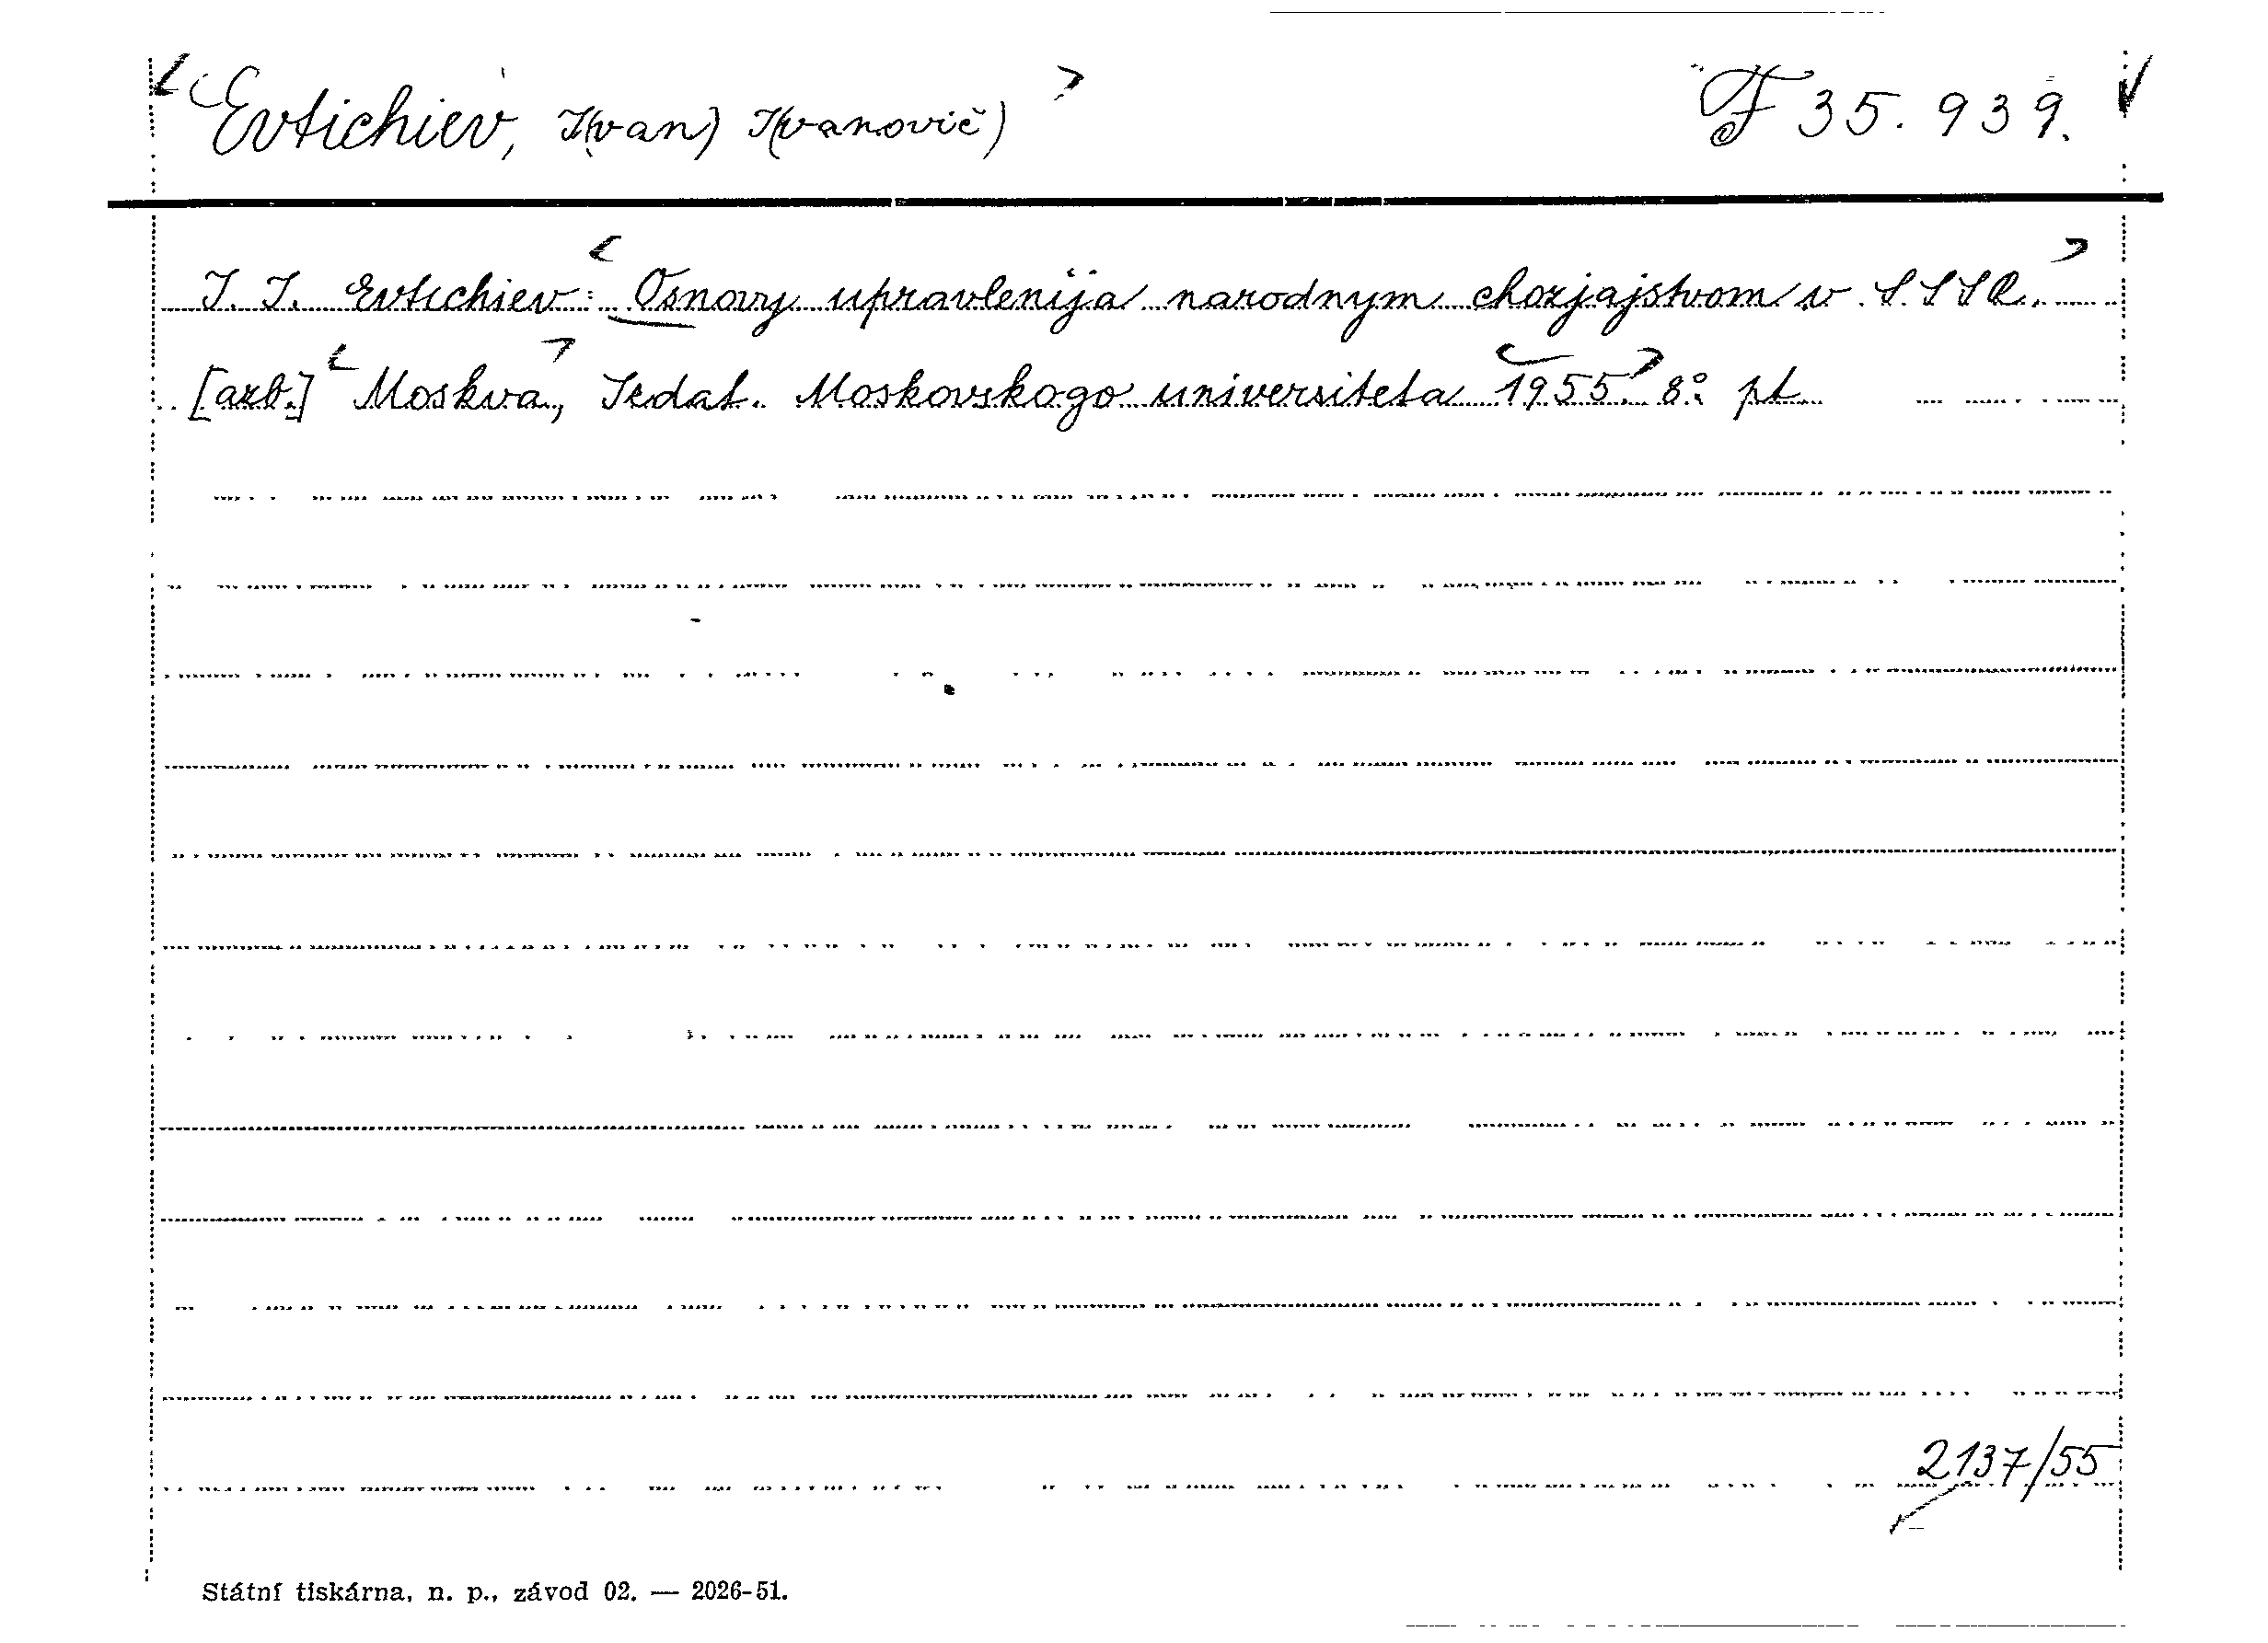 Evtichiev, I(van) I(vanovič)
F 35.939.
I. I. Evtichiev: Osnovy upravlenija narodnym chozjajstvom v SSSR.
[azb.] Moskva, Izdat. Moskovskogo universiteta 1955. 8° pt
2137/55
Státní tiskárna, n. p., závod 02. — 2026-51.